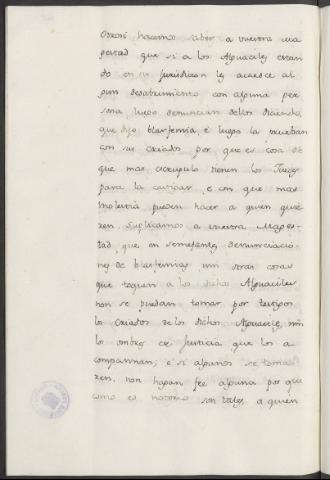 Otrosi hacemos saber a vuestra ma
gestad que si a los Alguaciles estan
do en su jurisdicion les acaesce al
gun desabrimiento con alguna per
sona luego denuncian dellos diciendo
que dijo blasfemia, e luego la prueban
con sus criados por que es cosa de
que mas escrupulo tienen los Jueces
para la castigar, e con que mas
molestia pueden hacer a quien quisie
ren, suplicamos a vuestra Mages-
tad, que en semejantes denunciacio
nes de blasfemias, nin otras cosas
que toquen a los dichos Alguaciles
non se puedan tomar por testigos
los criados de los dichos Alguaciles, nin
los ombres de Justicia que los a
compannan; e si algunos se toma
ren, non hagan fee alguna por que
como es notorio son tales, a quien